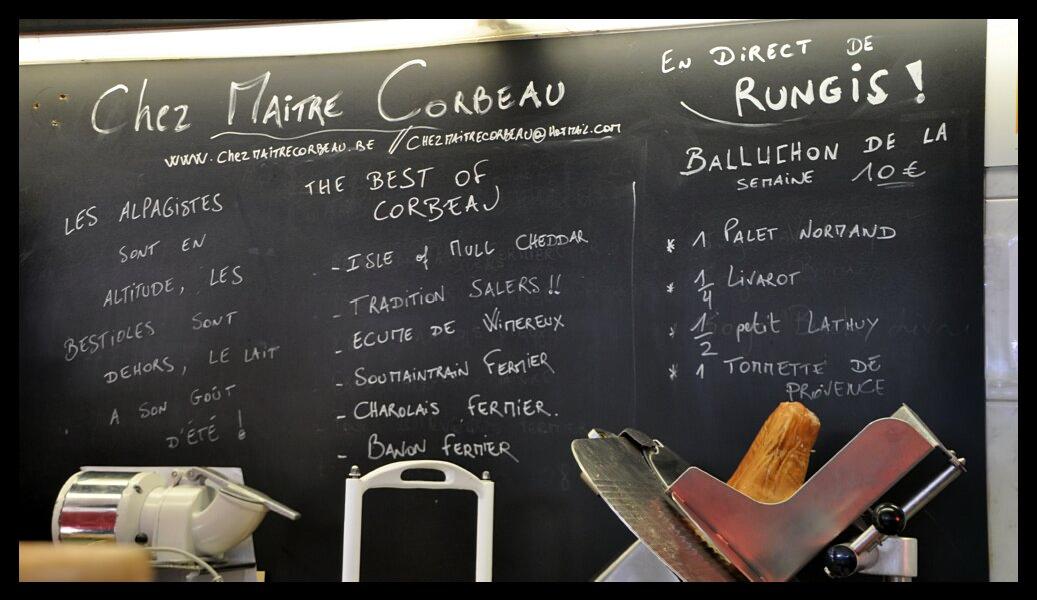 Chez MAITRE CORBEAU
WWW.CHEZMAITRECORBEAU.BE // CHEZMAITRECORBEAU@HOTMAIL.COM
LES ALPAGISTES
SONT EN
ALTITUDE, LES
BESTIOLES SONT
DEHORS, LE LAIT
A SON GOÛT
D'ÉTÉ !
THE BEST OF
CORBEAU
- ISLE of MULL CHEDDAR
- TRADITION SALERS !!
- ECUME DE WIMEREUX
- SOUMAINTRAIN FERMIER
- CHAROLAIS FERMIER.
- BANON FERMIER
EN DIRECT DE
RUNGIS !
BALLUCHON DE LA
SEMAINE 10 €
* 1 PALET NORMAND
* 1/4 LIVAROT
* 1/2 petit LATHUY
* 1 TOMMETTE DE
PROVENCE